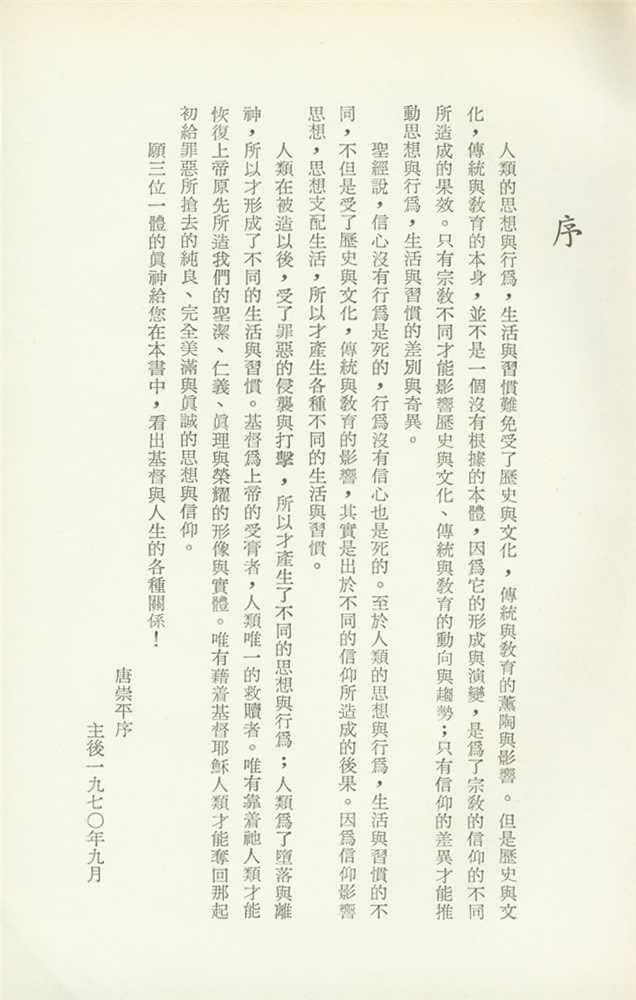 序
人類的思想與行爲，生活與習慣難免受了歷史與文化，傳統與敎育的薰陶與影響。但是歷史與文
化，傳統與敎育的本身，並不是一個沒有根據的本體，因爲它的形成與演變，是爲了宗敎的信仰的不同
所造成的果效。只有宗敎不同才能影響歷史與文化、傳統與敎育的動向與趨勢；只有信仰的差異才能推
動思想與行爲，生活與習慣的差別與奇異。
聖經說，信心沒有行爲是死的，行爲沒有信心也是死的。至於人類的思想與行爲，生活與習慣的不
同，不但是受了歷史與文化，傳統與敎育的影響，其實是出於不同的信仰所造成的後果。因爲信仰影響
思想，思想支配生活，所以才產生各種不同的生活與習慣。
人類在被造以後，受了罪惡的侵襲與打擊，所以才產生了不同的思想與行爲；人類爲了墮落與離
神，所以才形成了不同的生活與習慣。基督爲上帝的受膏者，人類唯一的救贖者。唯有靠着祂人類才能
恢復上帝原先所造我們的聖潔、仁義、眞理與榮耀的形像與實體。唯有藉着基督耶穌人類才能奪回那起
初給罪惡所搶去的純良、完全美滿與眞誠的思想與信仰。
願三位一體的眞神給您在本書中，看出基督與人生的各種關係！
唐崇平序
主後一九七〇年九月